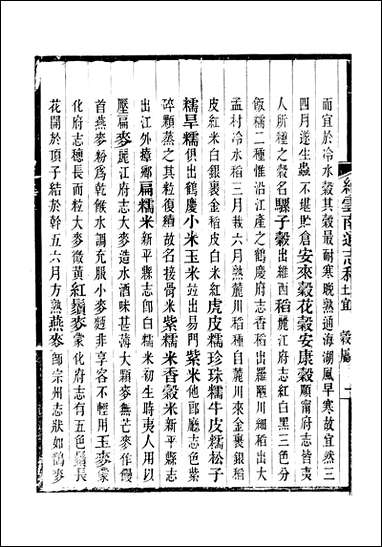 續雲南通志稿 土宜 穀屬
而宜於冷水穀其穀最耐寒晚熟通海湖風早寒故宜然三
四月遂生蟲不堪貯倉安來穀花穀安康穀順甯府志皆夷
人所種之穀名騾子穀出維西稻麗江府志紅白黑三色分
飯糯二種惟沿江產之鶴慶府志香稻出羅陋川細稻出大
孟村冷水稻三月栽六月熟麓川稻種自麓川來金裹銀稻
皮紅米白銀裹金稻皮白米紅虎皮糯珍珠糯牛皮糯松子
糯旱糯俱出鶴慶小米玉米竝出易門紫米他郎廳志色紫
碎顆蒸之其粒復續故名接骨米紫糯米香穀米新平縣志
出江外璋鄉扁糯米新平縣志卽白糯米初生時夷人用以
壓扁麥麗江府志大麥造水酒味甚薄大顆麥無芒麥作饅
首燕麥粉為乾餱水調充服小麥麪非享客不輕用玉麥蒙
化府志穗長而大粒微黃紅鬚麥蒙化府志有五色鬚長
花開於頂子結於幹五六月方熟燕麥師宗州志狀如鵲麥